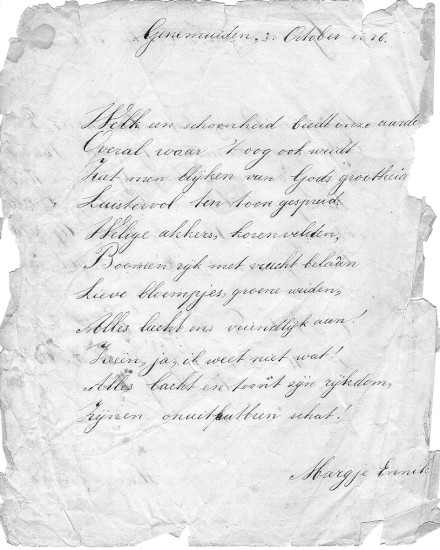 Genemuiden, October
Welk een schoonheid biedt onze aarde
Overal waar 't oog ook weidt
Ziet men blijken van Gods grootheid
Luistervol ten toon gespreid.
Welige akkers, korenvelden,
Boomen rijk met vrucht beladen
Lieve bloempjes, groene weiden,
Alles lacht ons vriendlijk aan!
ja, ik weet niet wat!
Alles lacht en toont zijn rijkdom,
Zijnen schat!
Margje Ennik